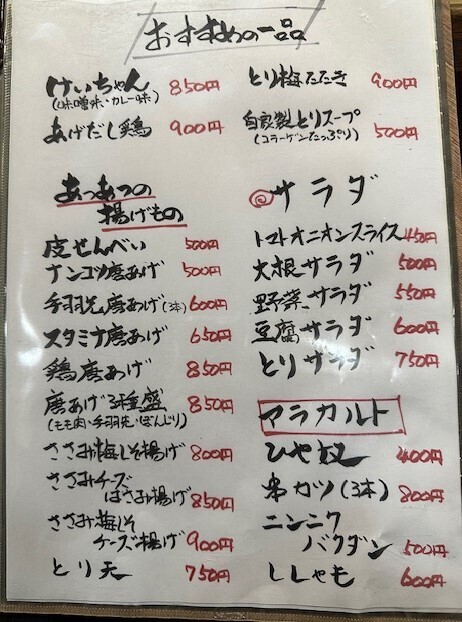 おすすめの一品
けいちゃん 850円
(味噌味・カレー味)
あげだし鶏 900円
とり梅たたき 900円
自家製とりスープ 500円
(コラーゲンたっぷり)
あつあつの
揚げもの
皮せんべい 500円
ナンコツ唐あげ 500円
手羽先唐あげ(3本) 600円
スタミナ唐あげ 650円
鶏唐あげ 850円
唐あげ3種盛 850円
(モモ肉・手羽先・ぼんじり)
ささみ梅しそ揚げ 800円
ささみチーズ
はさみ揚げ 850円
ささみ梅しそ
チーズ揚げ 900円
とり天 750円
◎サラダ
トマトオニオンスライス 450円
大根サラダ 500円
野菜サラダ 550円
豆腐サラダ 600円
とりサラダ 750円
アラカルト
ひや奴 400円
串カツ(3本) 800円
ニンニク
バクダン 500円
ししゃも 600円